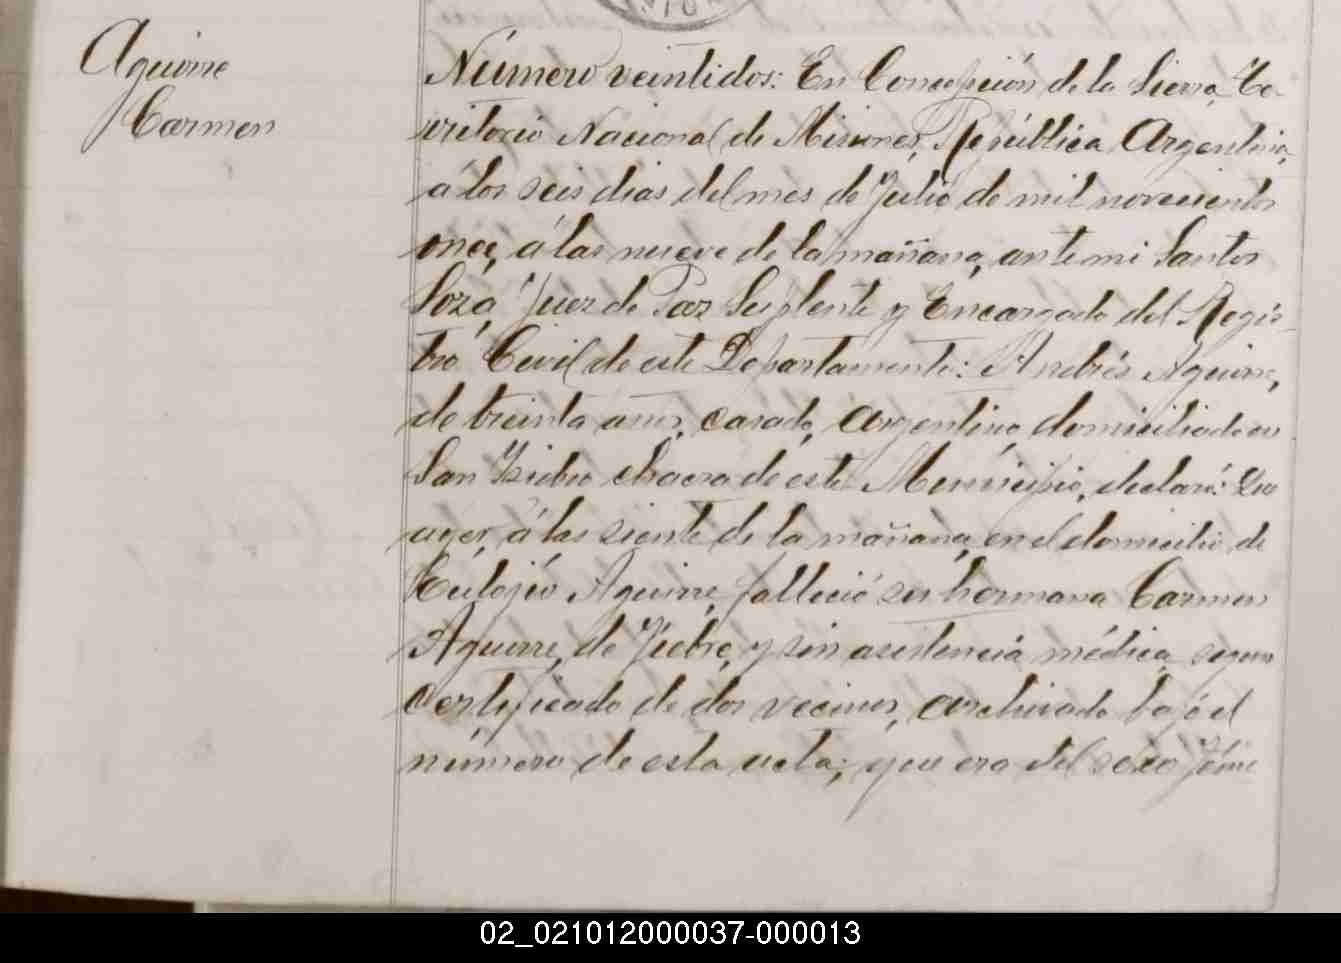 Aguirre
Carmen
Número veintidos: En Concepción de la Sierra, Te-
rritorio Nacional de Misiones, República Argentina,
á los seis dias del mes de Julio de mil novecientos
once, á las nueve de la mañana, ante mi Santos
Soza Juez de Paz Suplente y Encargado del Regis-
tro Civil de este Departamento: Andrés Aguirre,
de treinta años, casado, argentino, domiciliado en
San Isidro chacra de este Municipio, declaró: Que
ayer, á las siente de la mañana, en el domicilio de
Eulojio Aguirre, falleció su hermana Carmen
Aguirre, de fiebre, y sin asistencia médica, segun
certificado de dos vecinos, archivado bajo el
número de esta acta; que era del sexo feme
02_021012000037-000013